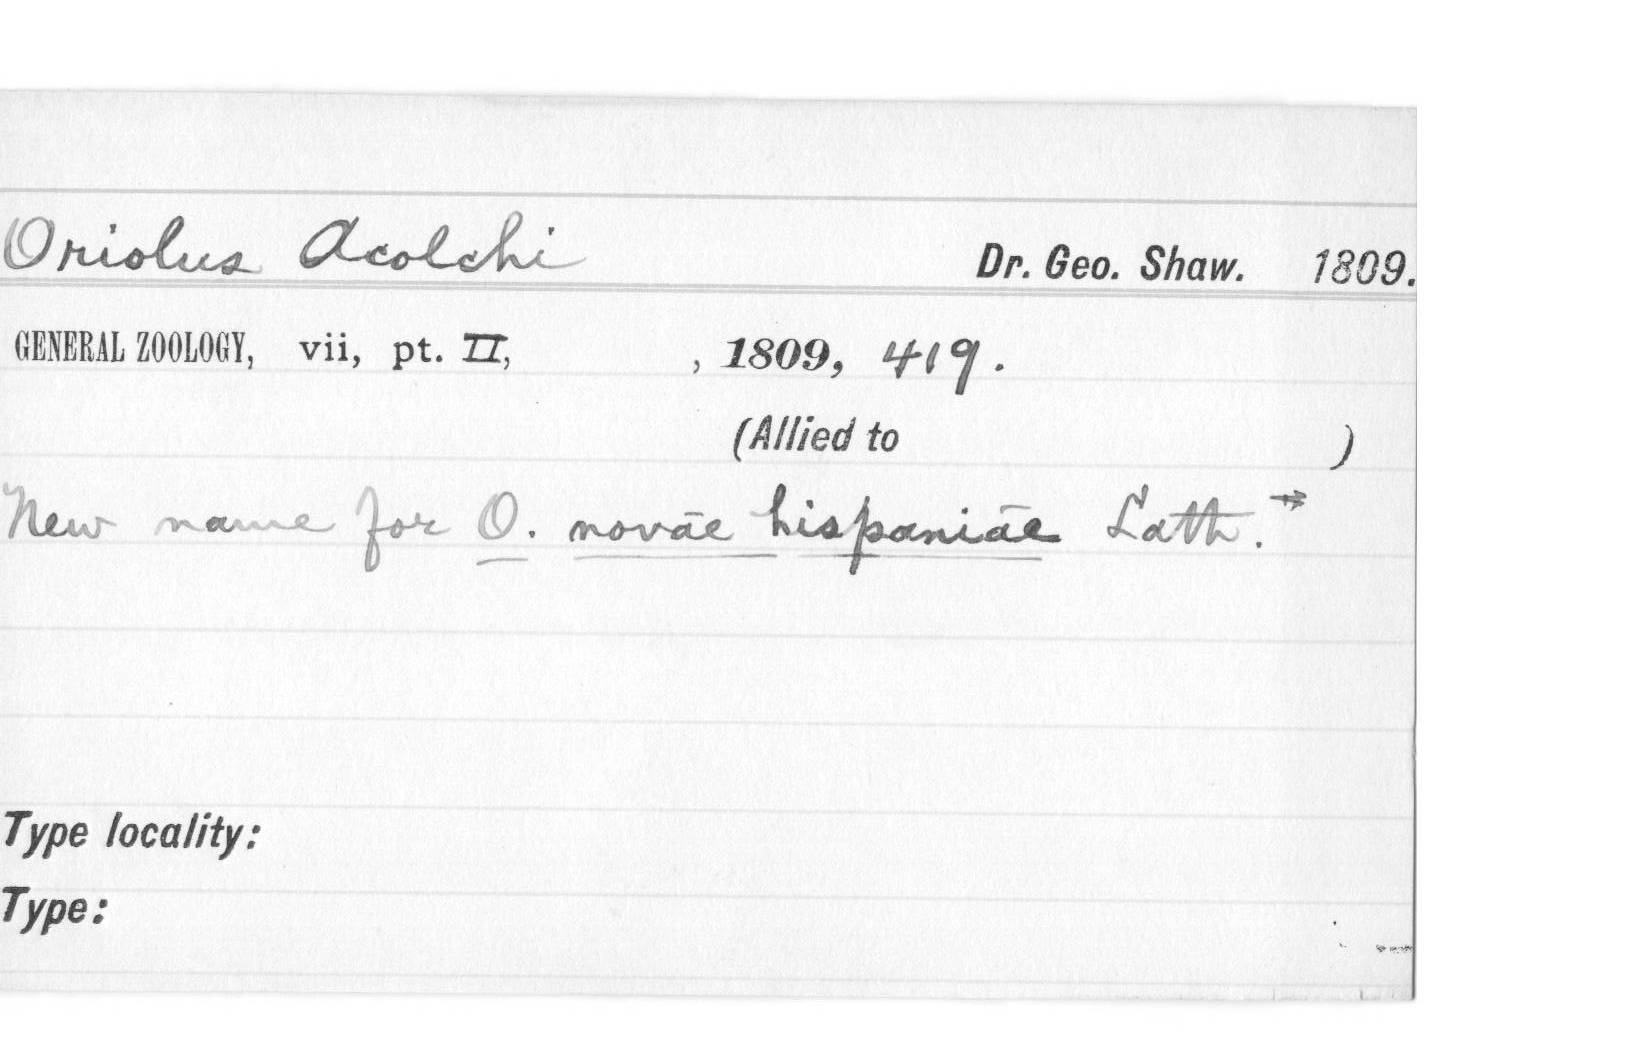 Oriolus Acolchi Dr. Geo. Shaw. 1809.
GENERAL ZOOLOGY, vii, pt. II, , 1809, 419.
(Allied to )
New name for O. novae hispaniae Lath.
Type locality:
Type: